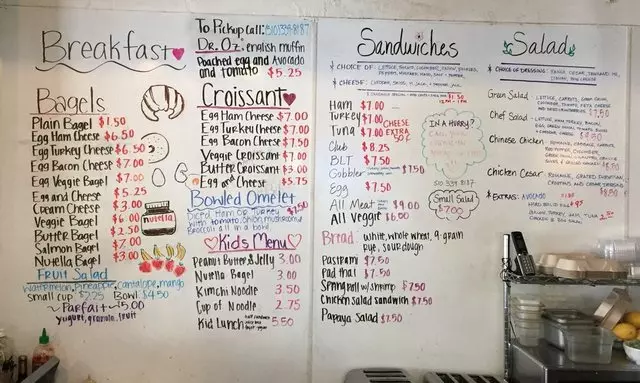 Breakfast
Bagels
Plain Bagel $1.50
Egg Ham Cheese $6.50
Egg Turkey Cheese $6.50
Egg Bacon Cheese $7.00
Egg Veggie Bagel $7.00
Egg and Cheese $5.25
Cream Cheese $3.00
Veggie Bagel $6.00
Butter Bagel $2.50
Salmon Bagel $7.00
Nutella Bagel $3.00
nutella
Fruit Salad
Watermelon, Pineapple, cantalope, mango
Small cup $2.25 Bowl $4.50
~Parfait~ $5.00
yugurt, granola, fruit
To Pickup Call: (510)339-8187
Dr. Oz: english muffin
Poached egg and Avocado
and tomato $5.25
Croissant
Egg Ham Cheese $7.00
Egg Turkey Cheese $7.00
Egg Bacon Cheese $7.50
Veggie Croissant $7.00
Butter Croissant $3.00
Egg and Cheese $5.75
Bowled Omelet
Diced Ham or Turkey $7.50
with tomato, onion, mushrooms
Broccoli all in a bowl
Kids Menu
Peanut Butter & Jelly 3.00
Nutella Bagel 3.00
Kimchi Noodle 3.50
Cup of Noodle 2.75
Kid Lunch 5.50
Sandwiches
* CHOICE OF: LETTUCE, SPROUTS, CUCUMBER, ONION, PICKLES,
PEPPERS, MUSTARD, MAYO, SALT + PEPPER
* CHEESE: CHEDDAR, SWISS,
Ham $7.00
Turkey $7.00
Tuna $7.00
CHEESE
EXTRA
50¢
Club $8.25
BLT $7.50
Gobbler $7.50
Egg $7.50
All Meat $9.00
All Veggie $6.00
IN A HURRY?
510 339 8187
Small Salad
$7.00
Bread white, whole wheat, 9-grain
rye, sourdough
Pastrami $7.50
Pad thai $7.50
Springroll w/ shrimp $7.50
Chicken salad sandwich $7.50
Papaya Salad $7.50
Salad
* CHOICE OF DRESSING: RANCH, CAESAR, THOUSAND ISL,
Green Salad LETTUCE, CARROTS,
$7.50
Chef Salad
Chinese Chicken
Chicken Caesar ROMAINE, GRATED
CROUTONS, AND CAESAR DRESSING
$8.50
* EXTRAS: AVOCADO